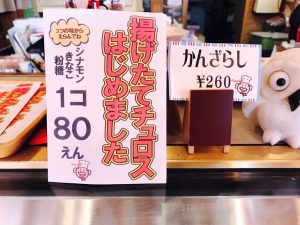 揚げたてチュロス
はじめました
3つの味から
えらんでね
シナモン
きなこ
粉糖
1コ
80
えん
かんざらし
¥260